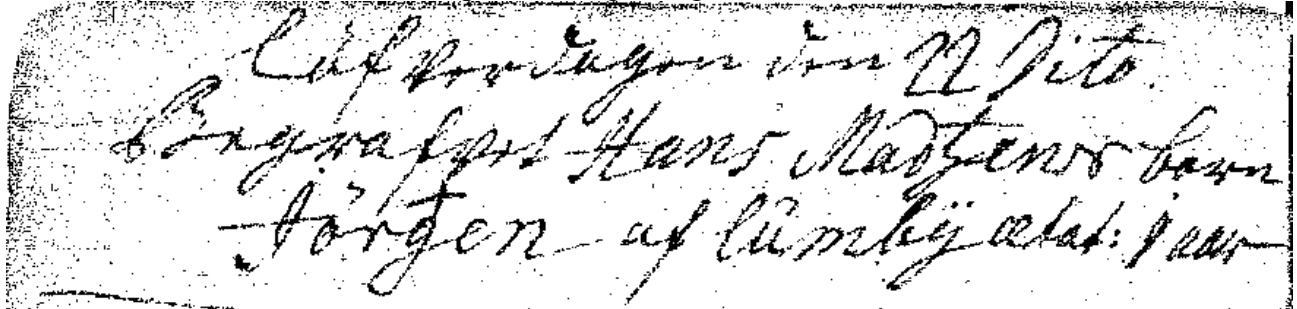 Løfverdagen den 22 Dito.
Begrafvet Hans Madzens barn
Jörgen af lûmbÿ ætat: 1 aar